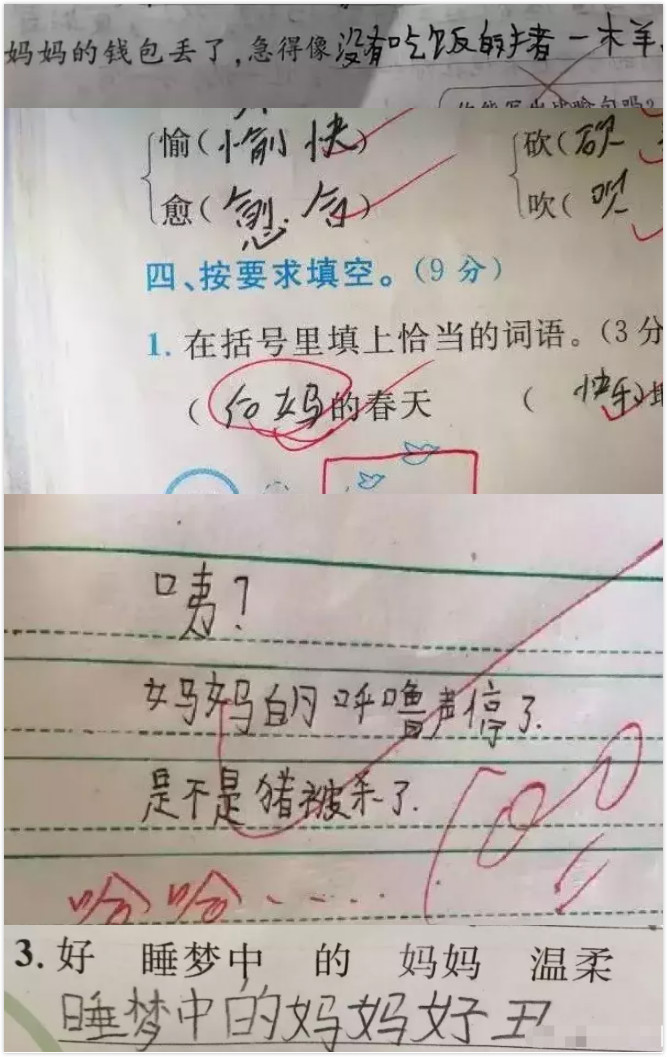 妈妈的钱包丢了,急得像没有吃饭的猪一木羊
愉(愉快) 砍(砍
愈(愈合) 吹(吹
四、按要求填空。(9分)
1. 在括号里填上恰当的词语。(3分
(后妈的春天 ( 快乐)地
咦?
妈妈的呼噜声停了.
是不是猪被杀了.
哈哈.....
3. 好 睡梦中 的 妈妈 温柔
睡梦中的妈妈好丑